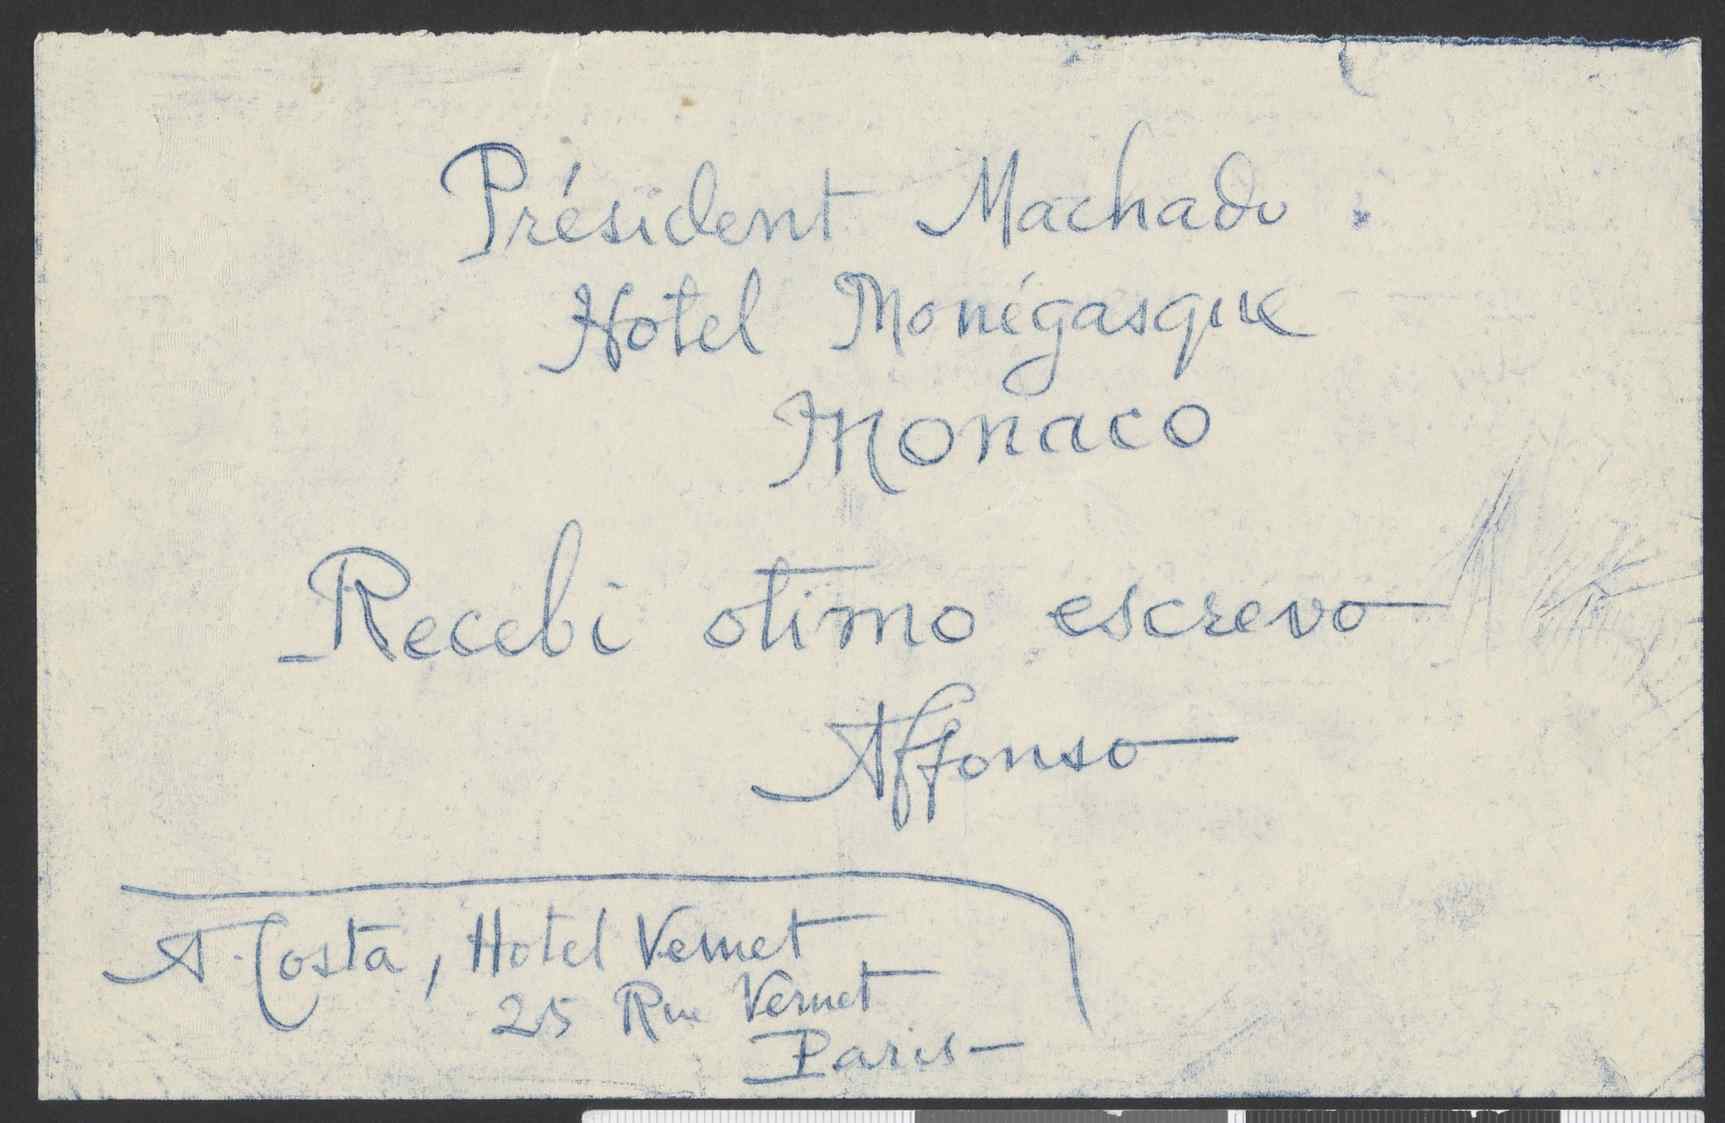 Président Machado
Hotel Monégasque
Monaco
Recebi otimo escrevo
Affonso
A. Costa, Hotel Vernet
25 Rue Vernet
Paris